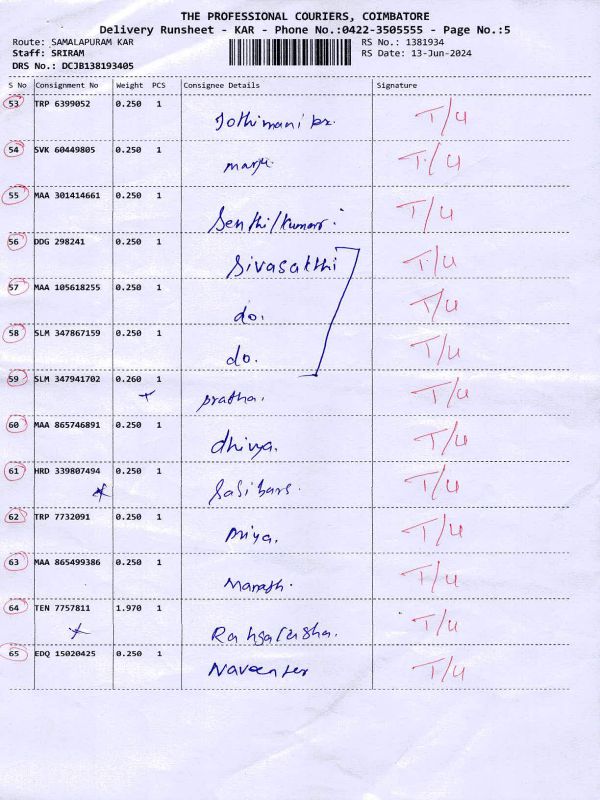 THE PROFESSIONAL COURIERS, COIMBATORE
Delivery Runsheet - KAR - Phone No.:0422-3505555 - Page No.:5
Route: SAMALAPURAM KAR RS No.: 1381934
Staff: SRIRAM RS Date: 13-Jun-2024
DRS No.: DCJB138193405
S No Consignment No Weight PCS Consignee Details Signature
53 TRP 6399052 0.250 1
Jothimani T/U
54 SVK 60449805 0.250 1
T/U
55 MAA 301414661 0.250 1
Senthilkumar T/U
56 DDG 298241 0.250 1
Sivasakthi T/U
57 MAA 105618255 0.250 1
do. T/U
58 SLM 347867159 0.250 1
do. T/U
59 SLM 347941702 0.260 1
pratha. T/U
60 MAA 865746891 0.250 1
dhivya. T/U
61 HRD 339807494 0.250 1
T/U
62 TRP 7732091 0.250 1
priya. T/U
63 MAA 865499386 0.250 1
T/U
64 TEN 7757811 1.970 1
T/U
65 EDQ 15020425 0.250 1
T/U